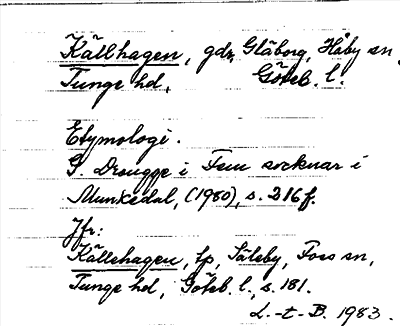 Källhagen, gdr, Gläborg, Håby sn,
Tunge hd, Göteb. l.
Etymologi.
G. Drougge i Fem socknar i
Munkedal, (1980), s. 216 f.
Jfr:
Källehagen, lp, Säleby, Foss sn,
Tunge hd, Göteb. l., s. 181.
L.-t-B. 1983.